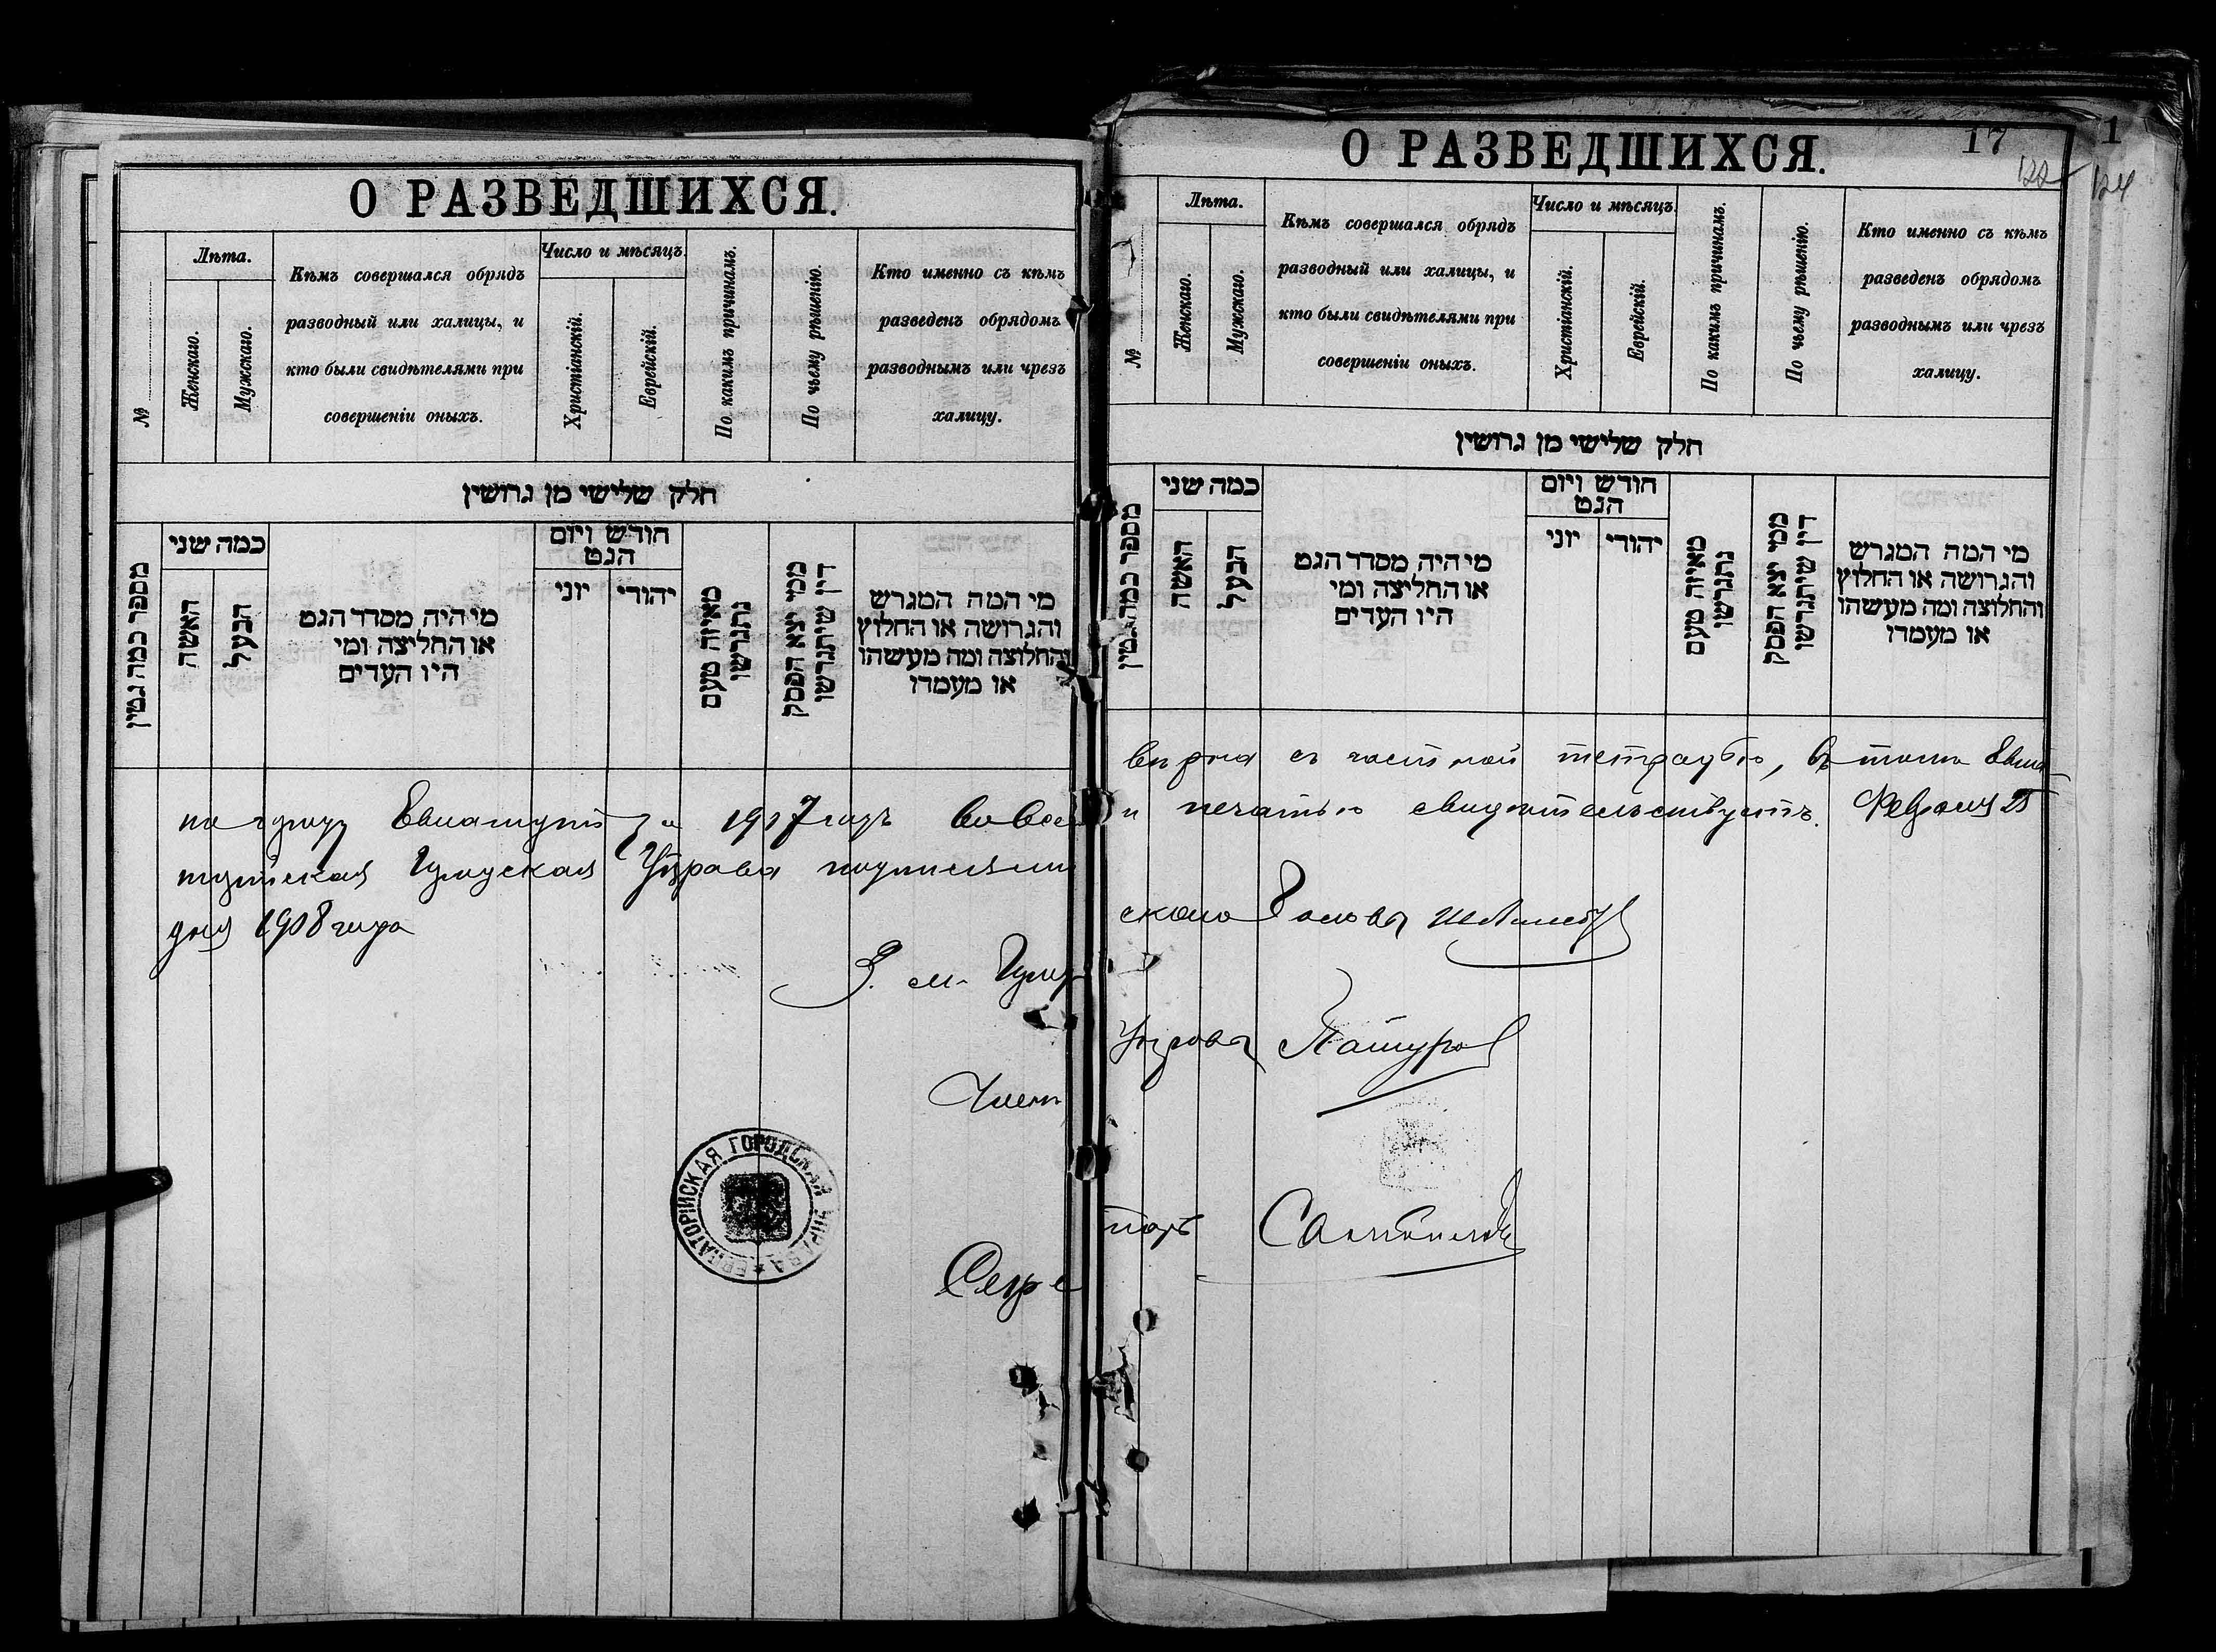 О РАЗВЕДШИХСЯ.
№
Лѣта.
Женскаго.
Мужскаго.
Кѣмъ совершался обрядъ
разводный или халицы, и
кто были свидѣтелями при
совершеніи оныхъ.
Число и мѣсяцъ.
Христіанскій.
Еврейскій.
По какимъ причинамъ.
По чьему рѣшенію.
Кто именно съ кѣмъ
разведенъ обрядомъ
разводнымъ или чрезъ
халицу.
חלק שלישי מן גרושין
מספר כמה גטין
כמה שני
האשה
הבעל
מי היה מסדר הגט
או החליצה ומי
היו העדים
חודש ויום
הגט
יוני
יהודי
מאיזה טעם
נתגרשו
ממי יצא הפסק
דין שיתגרשו
מי המה המגרש
והגרושה או החלוץ
והחלוצה ומה מעשהו
או מעמדו
по городу Евпаторіи за 1907 годъ
Городская Управа
дня 1908 года
Гор
Членъ
ЕВПАТОРІЙСКАЯ ГОРОДСКАЯ УПРАВА
Секре
О РАЗВЕДШИХСЯ.
17
1
122
124
№
Лѣта.
Женскаго.
Мужскаго.
Кѣмъ совершался обрядъ
разводный или халицы, и
кто были свидѣтелями при
совершеніи оныхъ.
Число и мѣсяцъ.
Христіанскій.
Еврейскій.
По какимъ причинамъ.
По чьему рѣшенію.
Кто именно съ кѣмъ
разведенъ обрядомъ
разводнымъ или чрезъ
халицу.
חלק שלישי מן גרושין
מספר כמה גטין
כמה שני
האשה
הבעל
מי היה מסדר הגט
או החליצה ומי
היו העדים
חודש ויום
הגט
יוני
יהודי
מאיזה טעם
נתגרשו
ממי יצא הפסק
דין שיתגרשו
מי המה המגרש
והגרושה או החלוץ
והחלוצה ומה מעשהו
או מעמדו
вѣрна съ тетрадью, въ томъ Евпа-
и печатью свидѣтельствуетъ. Февраля 25
ского Головы
Управы
тарь